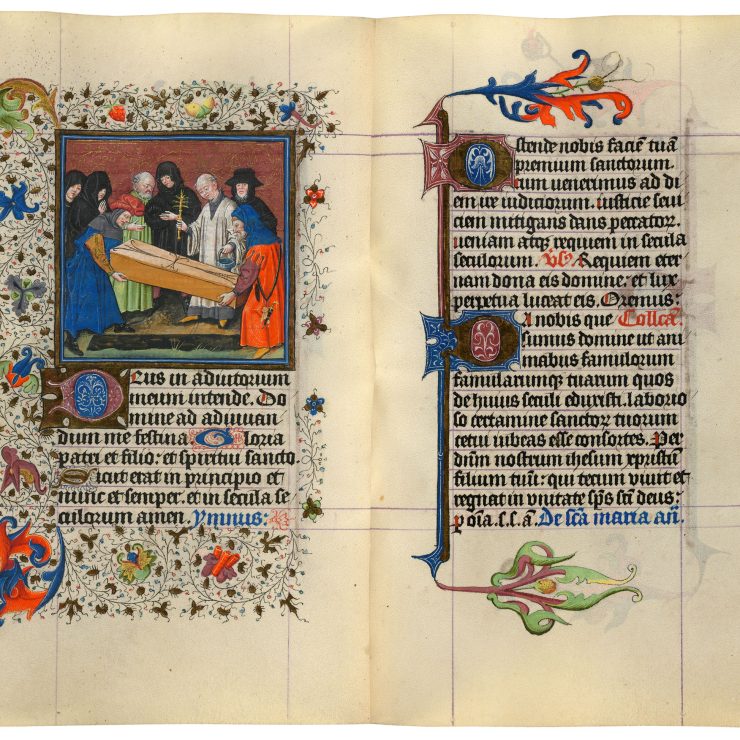 Deus in adiutorium
meum intende. Do
mine ad adiuuan
dum me festina Gloria
patri et filio: et spiritui sancto.
Sicut erat in principio et
nunc et semper. et in secula se
culorum amen. ymnus:
Ostende nobis faciē tuā
premium sanctorum.
cum uenerimus ad di
em iudiciorum. iusticie seui
ciem mitigans dans peccator.
ueniam atq; requiem in secula
seculorum. Vs. Requiem eter
nam dona eis domine: et lux
perpetua luceat eis. Oremus:
Da nobis que Collcā.
sumus domine ut ani
mabus famulorum
famularumq; tuarum quos
de huius seculi eduxisti. laborio
so certamine sanctor tuorum
cetui iubeas esse consortes. Per
dnm̄ nostrum ihesum xpristū
filium tuū: qui tecum viuit et
regnat in vnitate sp̄s sc̄i deus:
p oīa .s.s.ā. De sc̄a maria an̄.